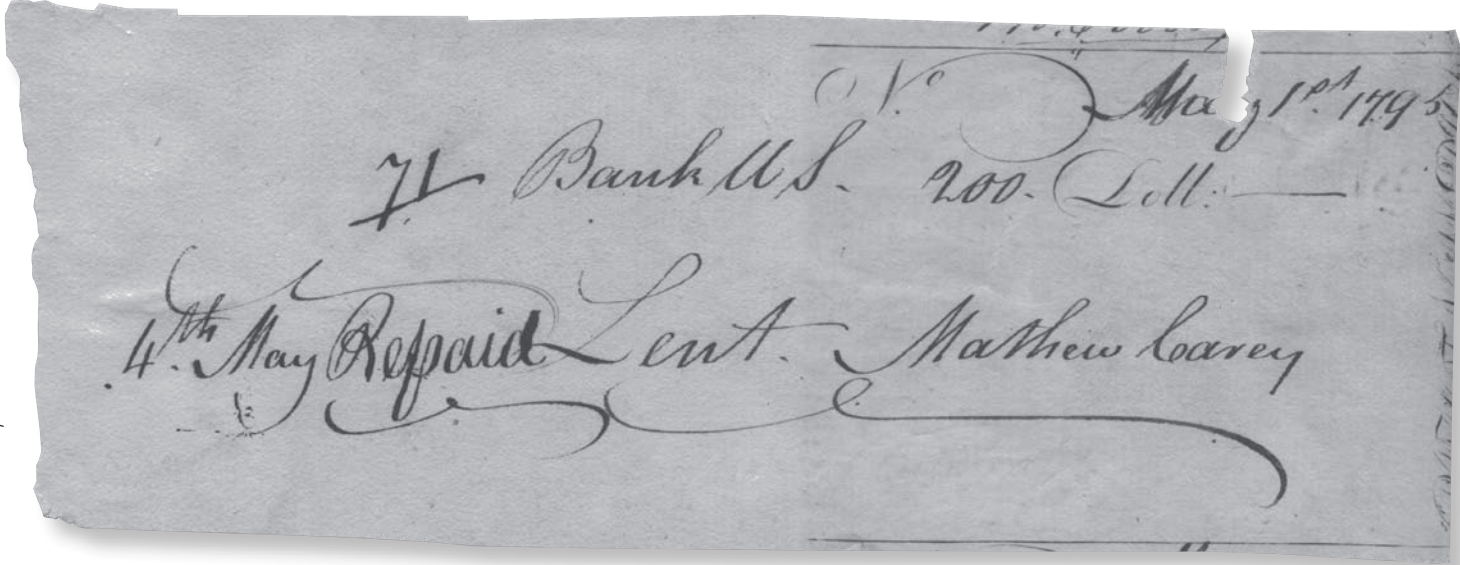 No. May 1st. 1795
71 Bank US. 200. Doll:
4th. May Repaid Lent. Mathew Carey